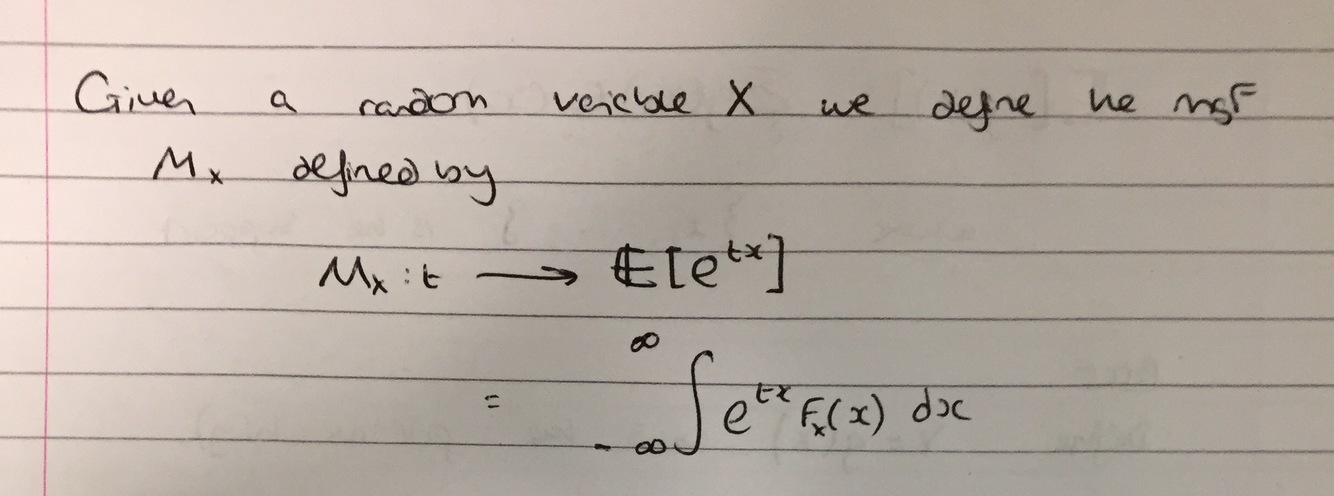 Given a random variable X we define the mgf
Mₓ defined by
Mₓ : t ⟶ 𝔼[e^{tx}]
= ∫_{-∞}^{∞} e^{tx} fₓ(x) dx